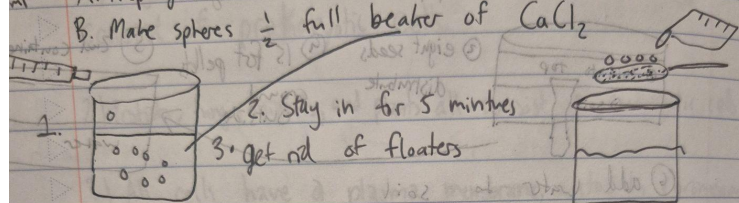 B. Make spheres 1/2 full beaker of CaCl₂
1.
2. Stay in for 5 mintues
3. get rid of floaters